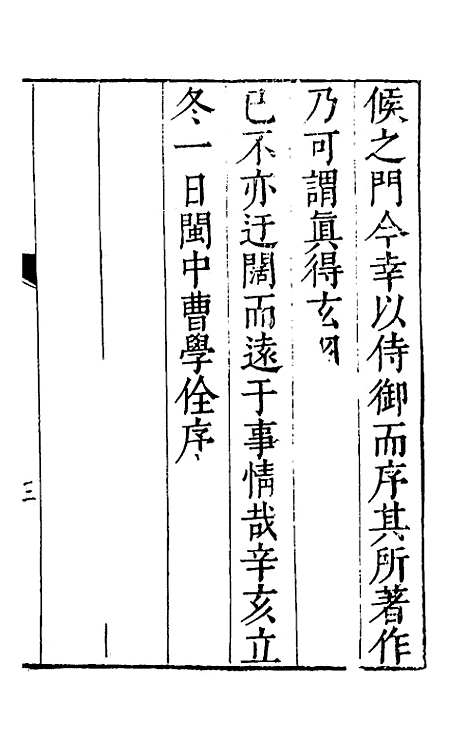 候之門今幸以侍御而序其所著作
乃可謂眞得玄
已不亦迂闊而遠于事情哉辛亥立
冬一日閩中曹學佺序
三